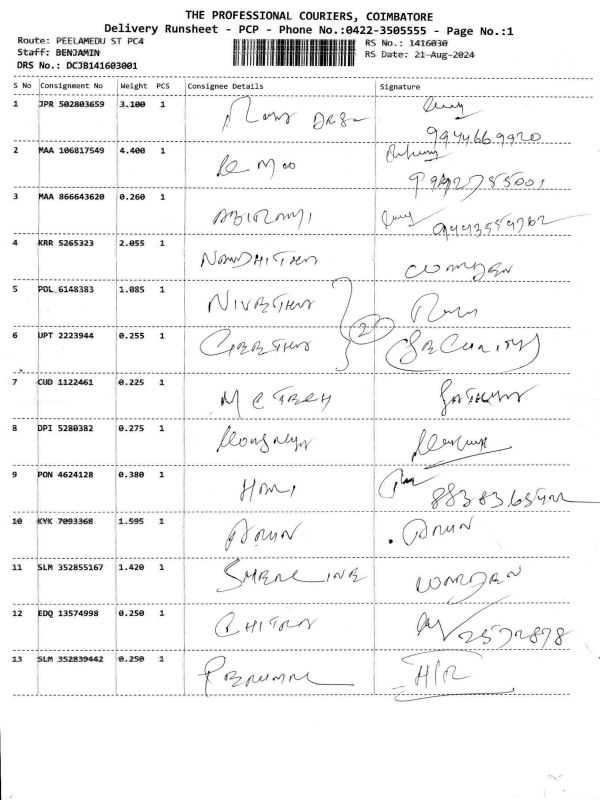 THE PROFESSIONAL COURIERS, COIMBATORE
Delivery Runsheet - PCP - Phone No.:0422-3505555 - Page No.:1
Route: PEELAMEDU ST PC4
RS No.: 1416030
Staff: BENJAMIN
RS Date: 21-Aug-2024
DRS No.: DCJB141603001
S No Consignment No Weight PCS Consignee Details Signature
1 JPR 502803659 3.100 1
9944669920
2 MAA 106817549 4.400 1
3 MAA 866643620 0.260 1 ABIRAMI
4 KRR 5265323 2.055 1 NANDHITHA WARDEN
5 POL 6148383 1.085 1 NIVETHA
2
6 UPT 2223944 0.255 1 GEETHA SECURITY
7 CUD 1122461 0.225 1 M C TECH
8 DPI 5280382 0.275 1
9 PON 4624128 0.380 1 HARI
10 KYK 7093368 1.595 1 ARUN ARUN
11 SLM 352855167 1.420 1 WARDEN
12 EDQ 13574998 0.250 1 CHITRA 2572878
13 SLM 352839442 0.250 1 PERUMAL H/R